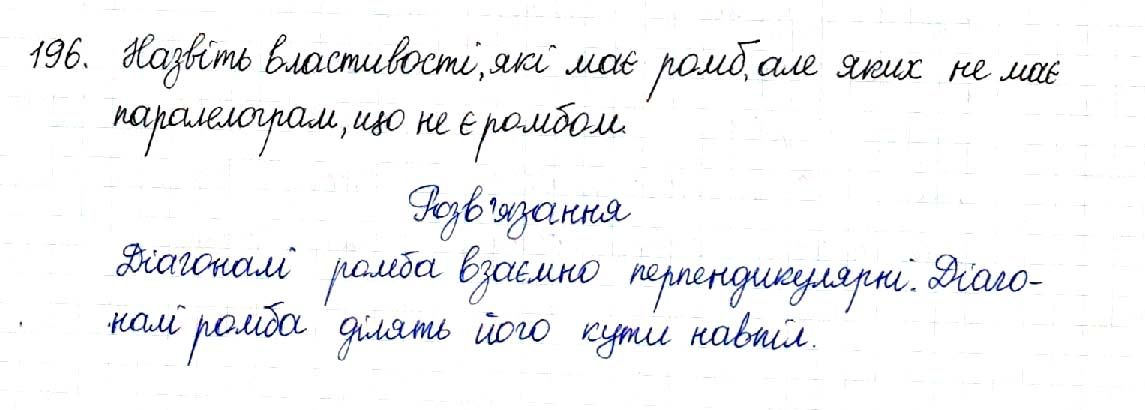 196. Назвіть властивості, які має ромб, але яких не має
паралелограм, що не є ромбом.
Розв'язання
Діагоналі ромба взаємно перпендикулярні. Діаго-
налі ромба ділять його кути навпіл.